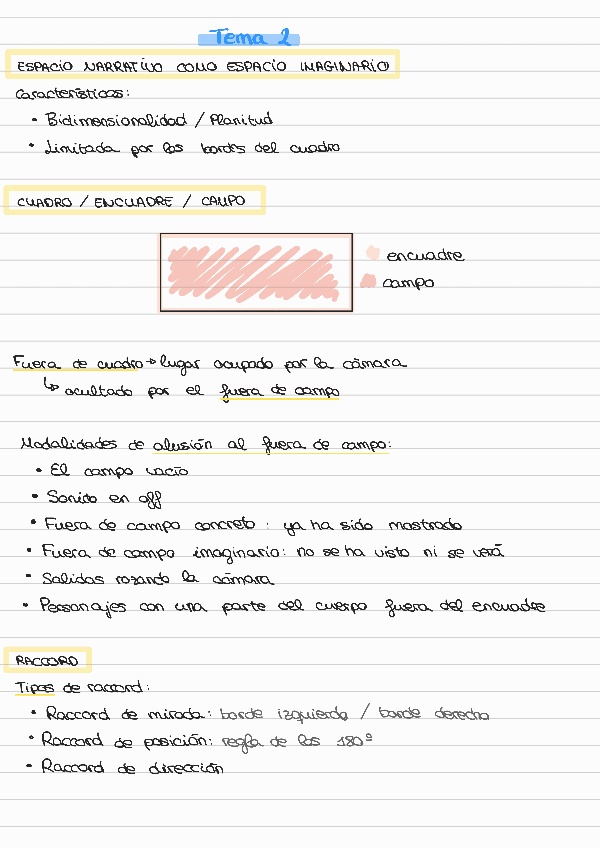 Tema 2
ESPACIO NARRATIVO COMO ESPACIO IMAGINARIO
Características:
• Bidimensionalidad / Planitud
• Limitada por los bordes del cuadro
CUADRO / ENCUADRE / CAMPO
encuadre
campo
Fuera de cuadro → lugar ocupado por la cámara
↳ ocultado por el fuera de campo
Modalidades de alusión al fuera de campo:
• El campo vacío
• Sonido en off
• Fuera de campo concreto: ya ha sido mostrado
• Fuera de campo imaginario: no se ha visto ni se verá
• Salidas rozando la cámara
• Personajes con una parte del cuerpo fuera del encuadre
RACCORD
Tipos de raccord:
• Raccord de mirada: borde izquierdo / borde derecho
• Raccord de posición: regla de los 180º
• Raccord de dirección